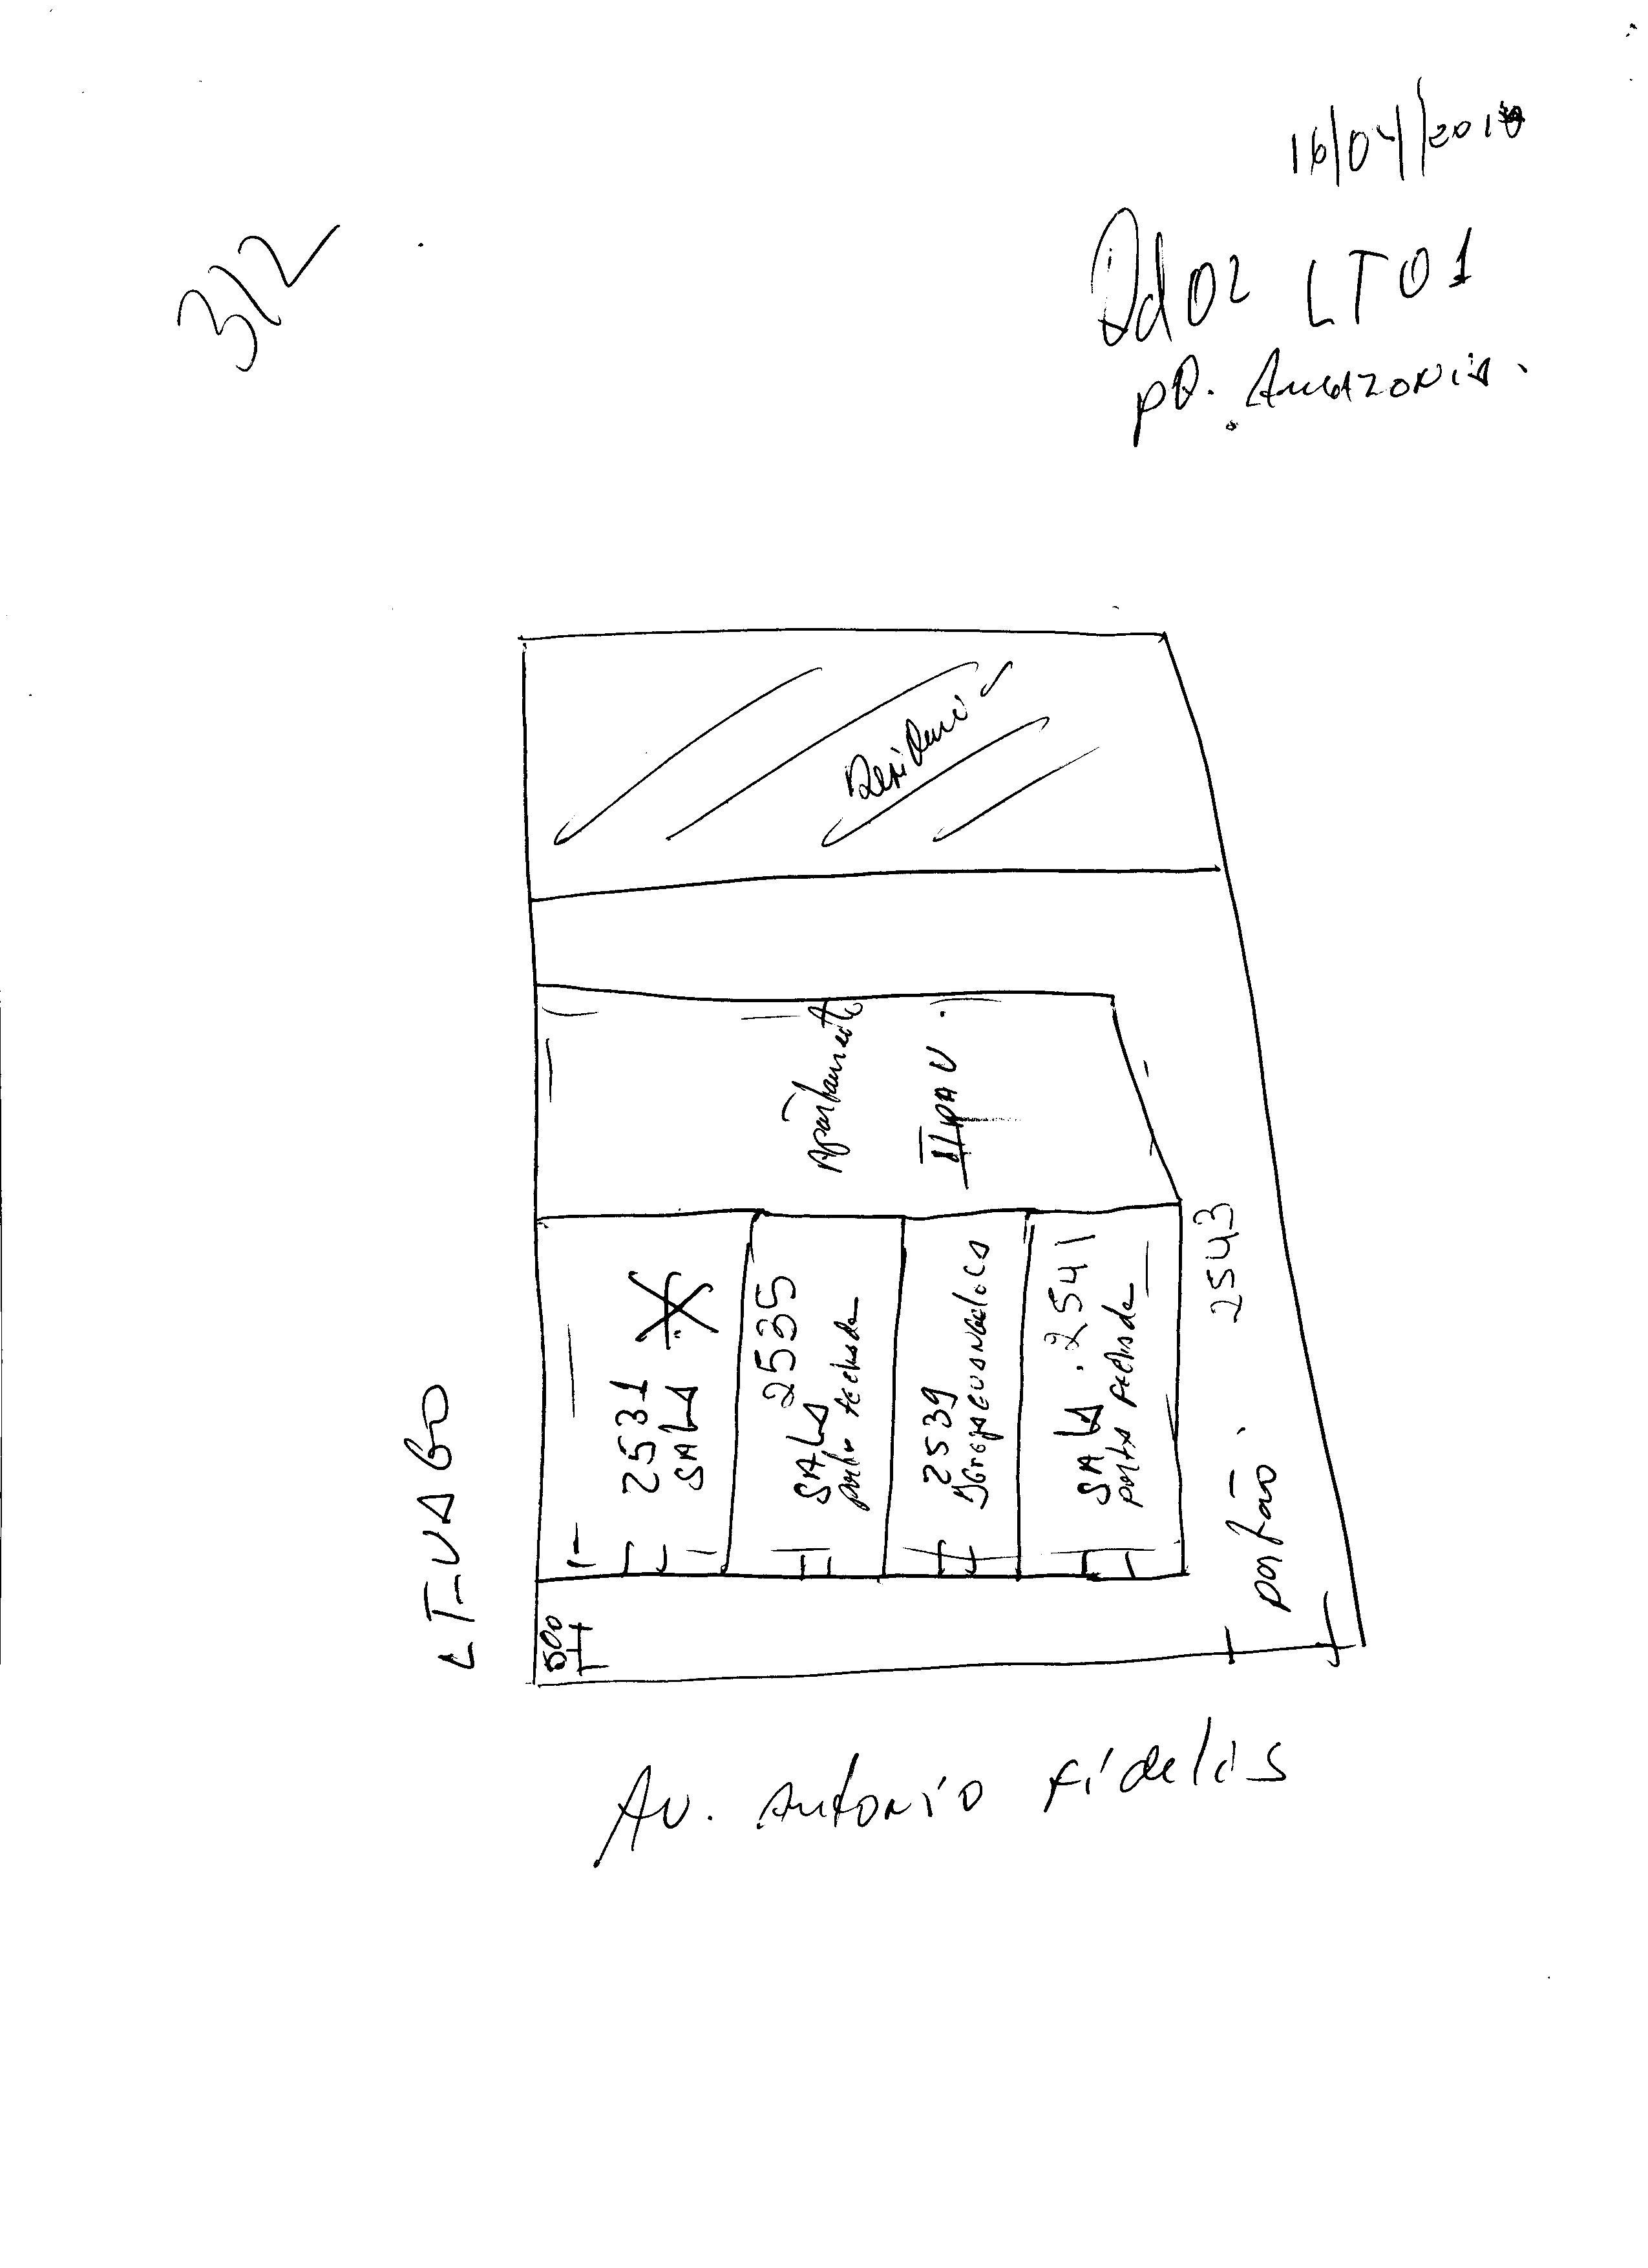 16/04/2010
312
Qd 02 LT 01
pQ. Amazonia.
Residenci
Apartamento
II PAV.
2531
SALA
SALA 2535
porta fechada
2539
Igreja Evangelica
SALA. 2541
porta fechada
2543
portão.
LT-VAGO
500
Av. Antonio Fidelis